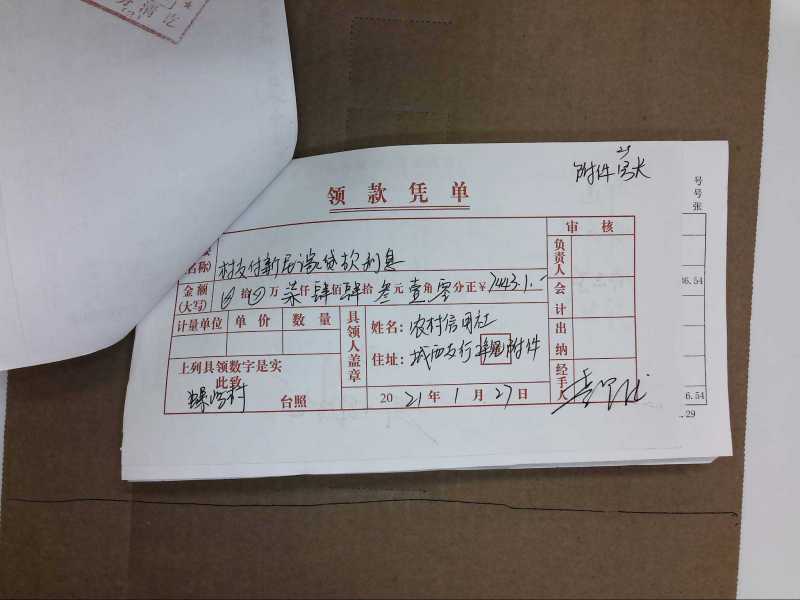 附件
领款凭单
审核
(名称) 村支付新居 贷款利息
负责人
金额(大写) ⊗拾⊗万柒仟肆佰肆拾叁元壹角零分正¥7443.1
会计
计量单位 单价 数量
具领人盖章
姓名:农村信用社
出纳
住址:城西支行 附件
上列具领数字是实
此致
村 台照
2021年1月27日
经手人
号
号
张
36.54
6.54
.29